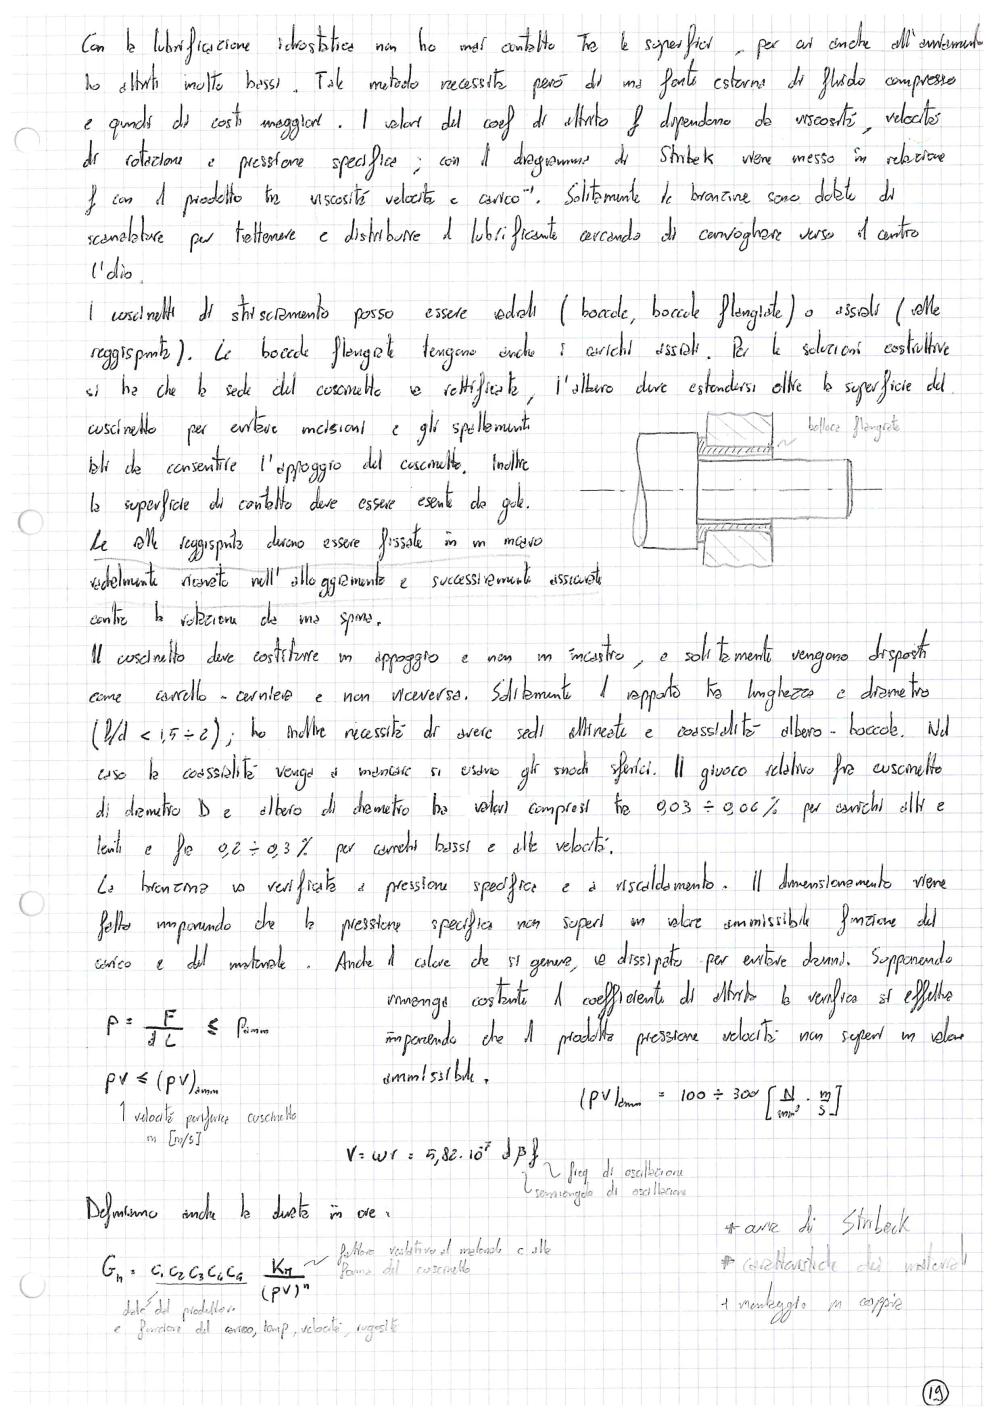 Con la lubrificazione idrostatica non ho mai contatto tra le superfici, per cui anche all'avviamento
ho attriti molto bassi. Tale metodo necessita però di una fonte esterna di fluido compresso
e quindi di costi maggiori. I valori del coef di attrito f dipendono da viscosità, velocità
di rotazione e pressione specifica; con il diagramma di Stribek viene messo in relazione
f con il prodotto tra viscosità velocità e carico⁻¹. Solitamente le bronzine sono dotate di
scanalature per trattenere e distribuire il lubrificante cercando di convogliare verso il centro
l'olio.
I cuscinetti di strisciamento posso essere radiali (boccole, boccole flangiate) o assiali (ralle
reggispinta). Le boccole flangiate tengono anche i carichi assiali. Per le soluzioni costruttive
si ha che la sede del cuscinetto va rettificata, l'albero deve estendersi oltre la superficie del
cuscinetto per evitare incisioni e gli spallamenti
tali da consentire l'appoggio del cuscinetto. Inoltre
la superficie di contatto deve essere esente da gole.
boccola flangiata
Le ralle reggispinta devono essere fissate in un incavo
radialmente ricavato nell'alloggiamento e successivamente assicurate
contro la rotazione da una spina.
Il cuscinetto deve costituire un appoggio e non un incastro, e solitamente vengono disposti
come carrello - cerniera e non viceversa. Solitamente il rapporto tra lunghezza e diametro
(l/d < 1,5 ÷ 2); ho inoltre necessità di avere sedi allineate e coassialità albero - boccola. Nel
caso la coassialità venga a mancare si usano gli snodi sferici. Il giuoco relativo fra cuscinetto
di diametro D e albero di diametro ha valori compresi tra 0,03 ÷ 0,06 % per carichi alti e
lenti e fra 0,2 ÷ 0,3 % per carichi bassi e alte velocità.
La bronzina va verificata a pressione specifica e a riscaldamento. Il dimensionamento viene
fatto imponendo che la pressione specifica non superi un valore ammissibile funzione del
carico e del materiale. Anche il calore che si genera, va dissipato per evitare danni. Supponendo
rimanga costante il coefficiente di attrito la verifica si effettua
imponendo che il prodotto pressione velocità non superi un valore
ammissibile.
p = F / dL ≤ p amm
pv ≤ (pv)amm
↑ velocità periferica cuscinetto
in [m/s]
(pv)amm = 100 ÷ 300 [N/mm² · m/s]
V = ωr = 5,82·10⁻⁷ d β f
freq di oscillazione
semiangolo di oscillazione
Definiamo anche la durata in ore:
Gh = C₁ C₂ C₃ C₄ C₅ KM / (pv)ⁿ
fattore relativo al materiale e alla
forma del cuscinetto
date dal produttore
e funzione del carico, temp, velocità, rugosità
+ curva di Stribeck
+ caratteristiche dei materiali
+ montaggio in coppia
19